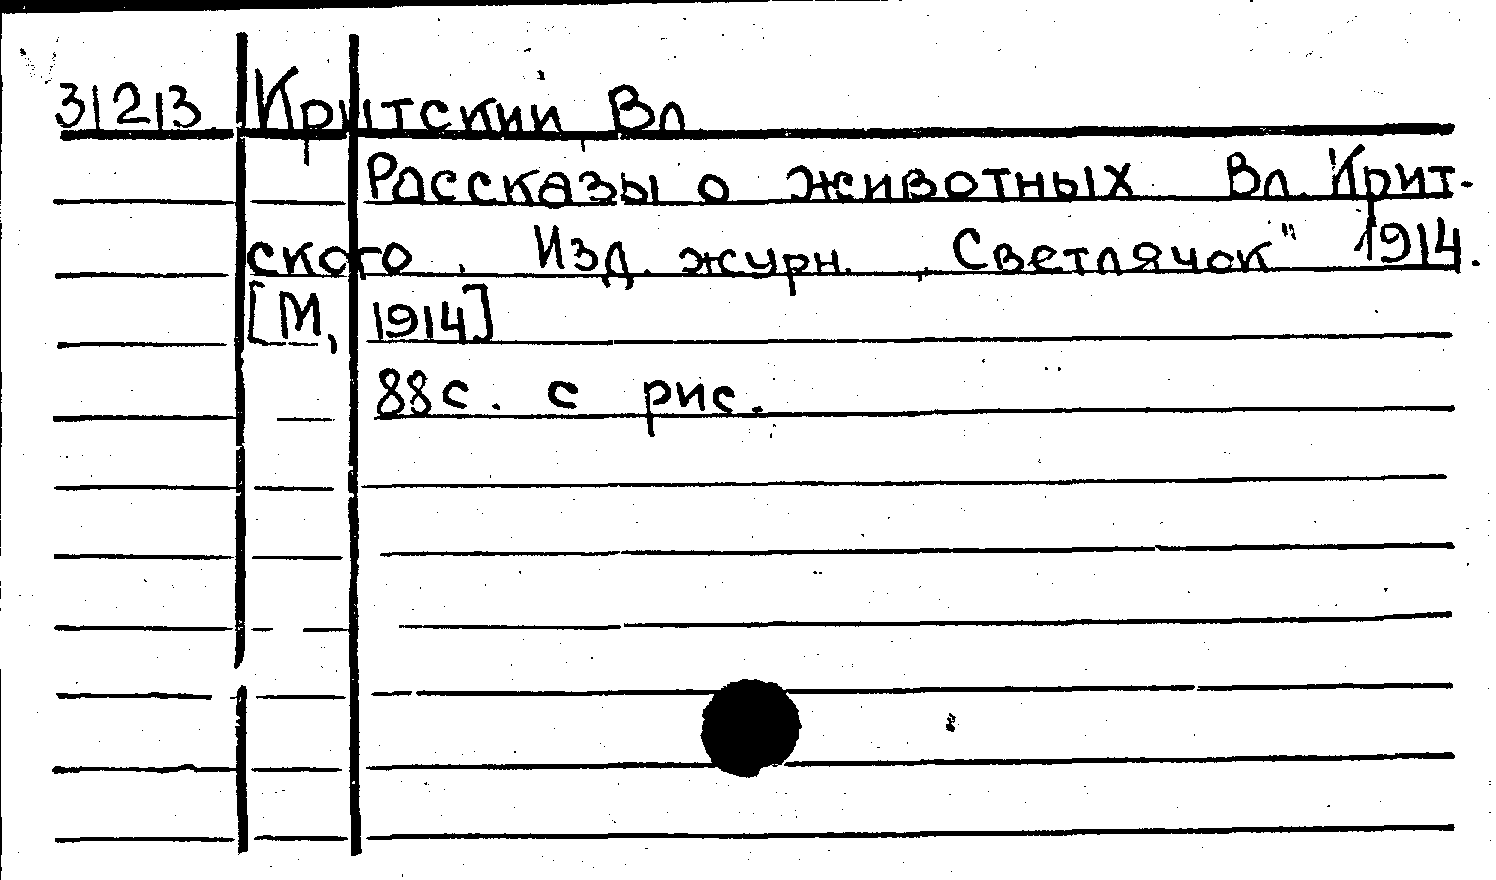 3|2|3 Критскии Вл
Рассказы о животных Вл. Крит-
ского. Изд. журн. „Светлячок" 1914.
[М, 1914]
88с. с рис.